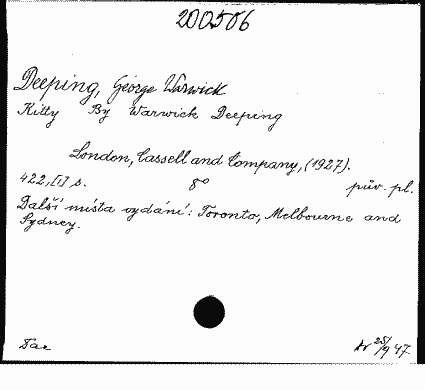 200506
Deeping, George Warwick
Kitty By Warwick Deeping
London, Cassell and Company, (1927).
422, [1] s. 8° pův. pl.
Další místa vydání: Toronto, Melbourne and
Sydney.
25/9 47